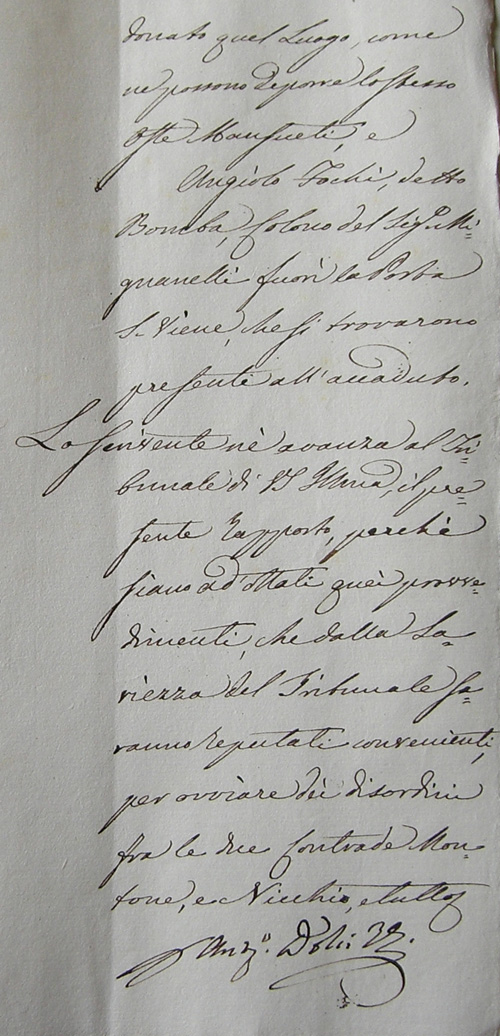 donato quel Luogo, come
ne possono deporre lo stesso
Oste Mansueti, e
Angiolo Fochi, detto
Bomba, Colono del Sig.r Mi=
gnanelli fuori la Porta
S. Viene, che si trovarono
presenti all'accaduto.
Lo scrivente nè avanza al Tri=
bunale di VS Illma, il pre=
sente rapporto, perchè
siano ad'ottati quei provve=
dimenti, che dalla Sa=
viezza del Tribunale sa=
ranno reputati convenienti,
per ovviare dei disordini
fra le due Contrade Mon=
tone, e Nicchio, e tutto